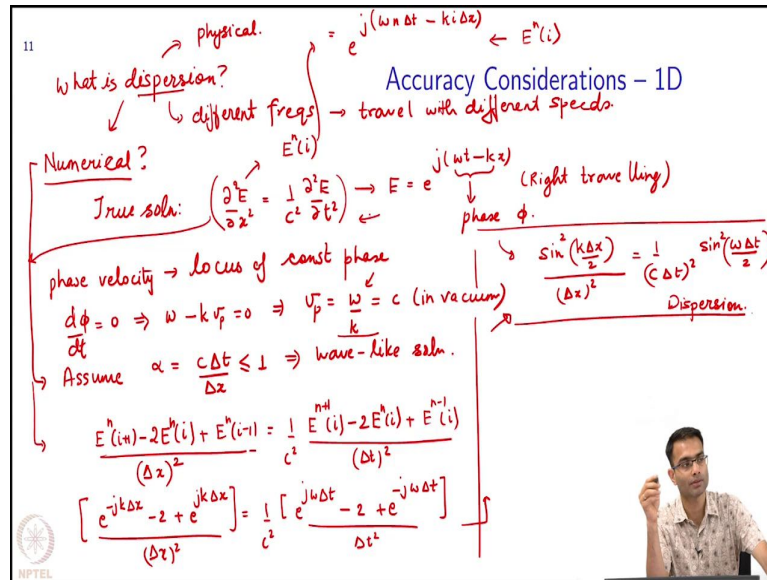 11
→ physical.
= e^{j(ωnΔt − kiΔx)} ← Eⁿ(i)
Accuracy Considerations – 1D
What is dispersion?
↳ different freqs → travel with different speeds.
Eⁿ(i)
Numerical?
True soln: (∂²E/∂x² = 1/c² ∂²E/∂t²) → E = e^{j(ωt − kx)} (Right travelling)
phase φ.
phase velocity → locus of const phase
dφ/dt = 0 ⇒ ω − k v_p = 0 ⇒ v_p = ω/k = c (in vacuum)
→ Assume α = cΔt/Δx ≤ 1 ⇒ wave-like soln.
(Eⁿ(i+1) − 2Eⁿ(i) + Eⁿ(i−1))/(Δx)² = 1/c² (Eⁿ⁺¹(i) − 2Eⁿ(i) + Eⁿ⁻¹(i))/(Δt)²
[e^{−jkΔx} − 2 + e^{jkΔx}]/(Δx)² = 1/c² [e^{jωΔt} − 2 + e^{−jωΔt}]/Δt²
sin²(kΔx/2)/(Δx)² = 1/(cΔt)² sin²(ωΔt/2)
Dispersion.
NPTEL